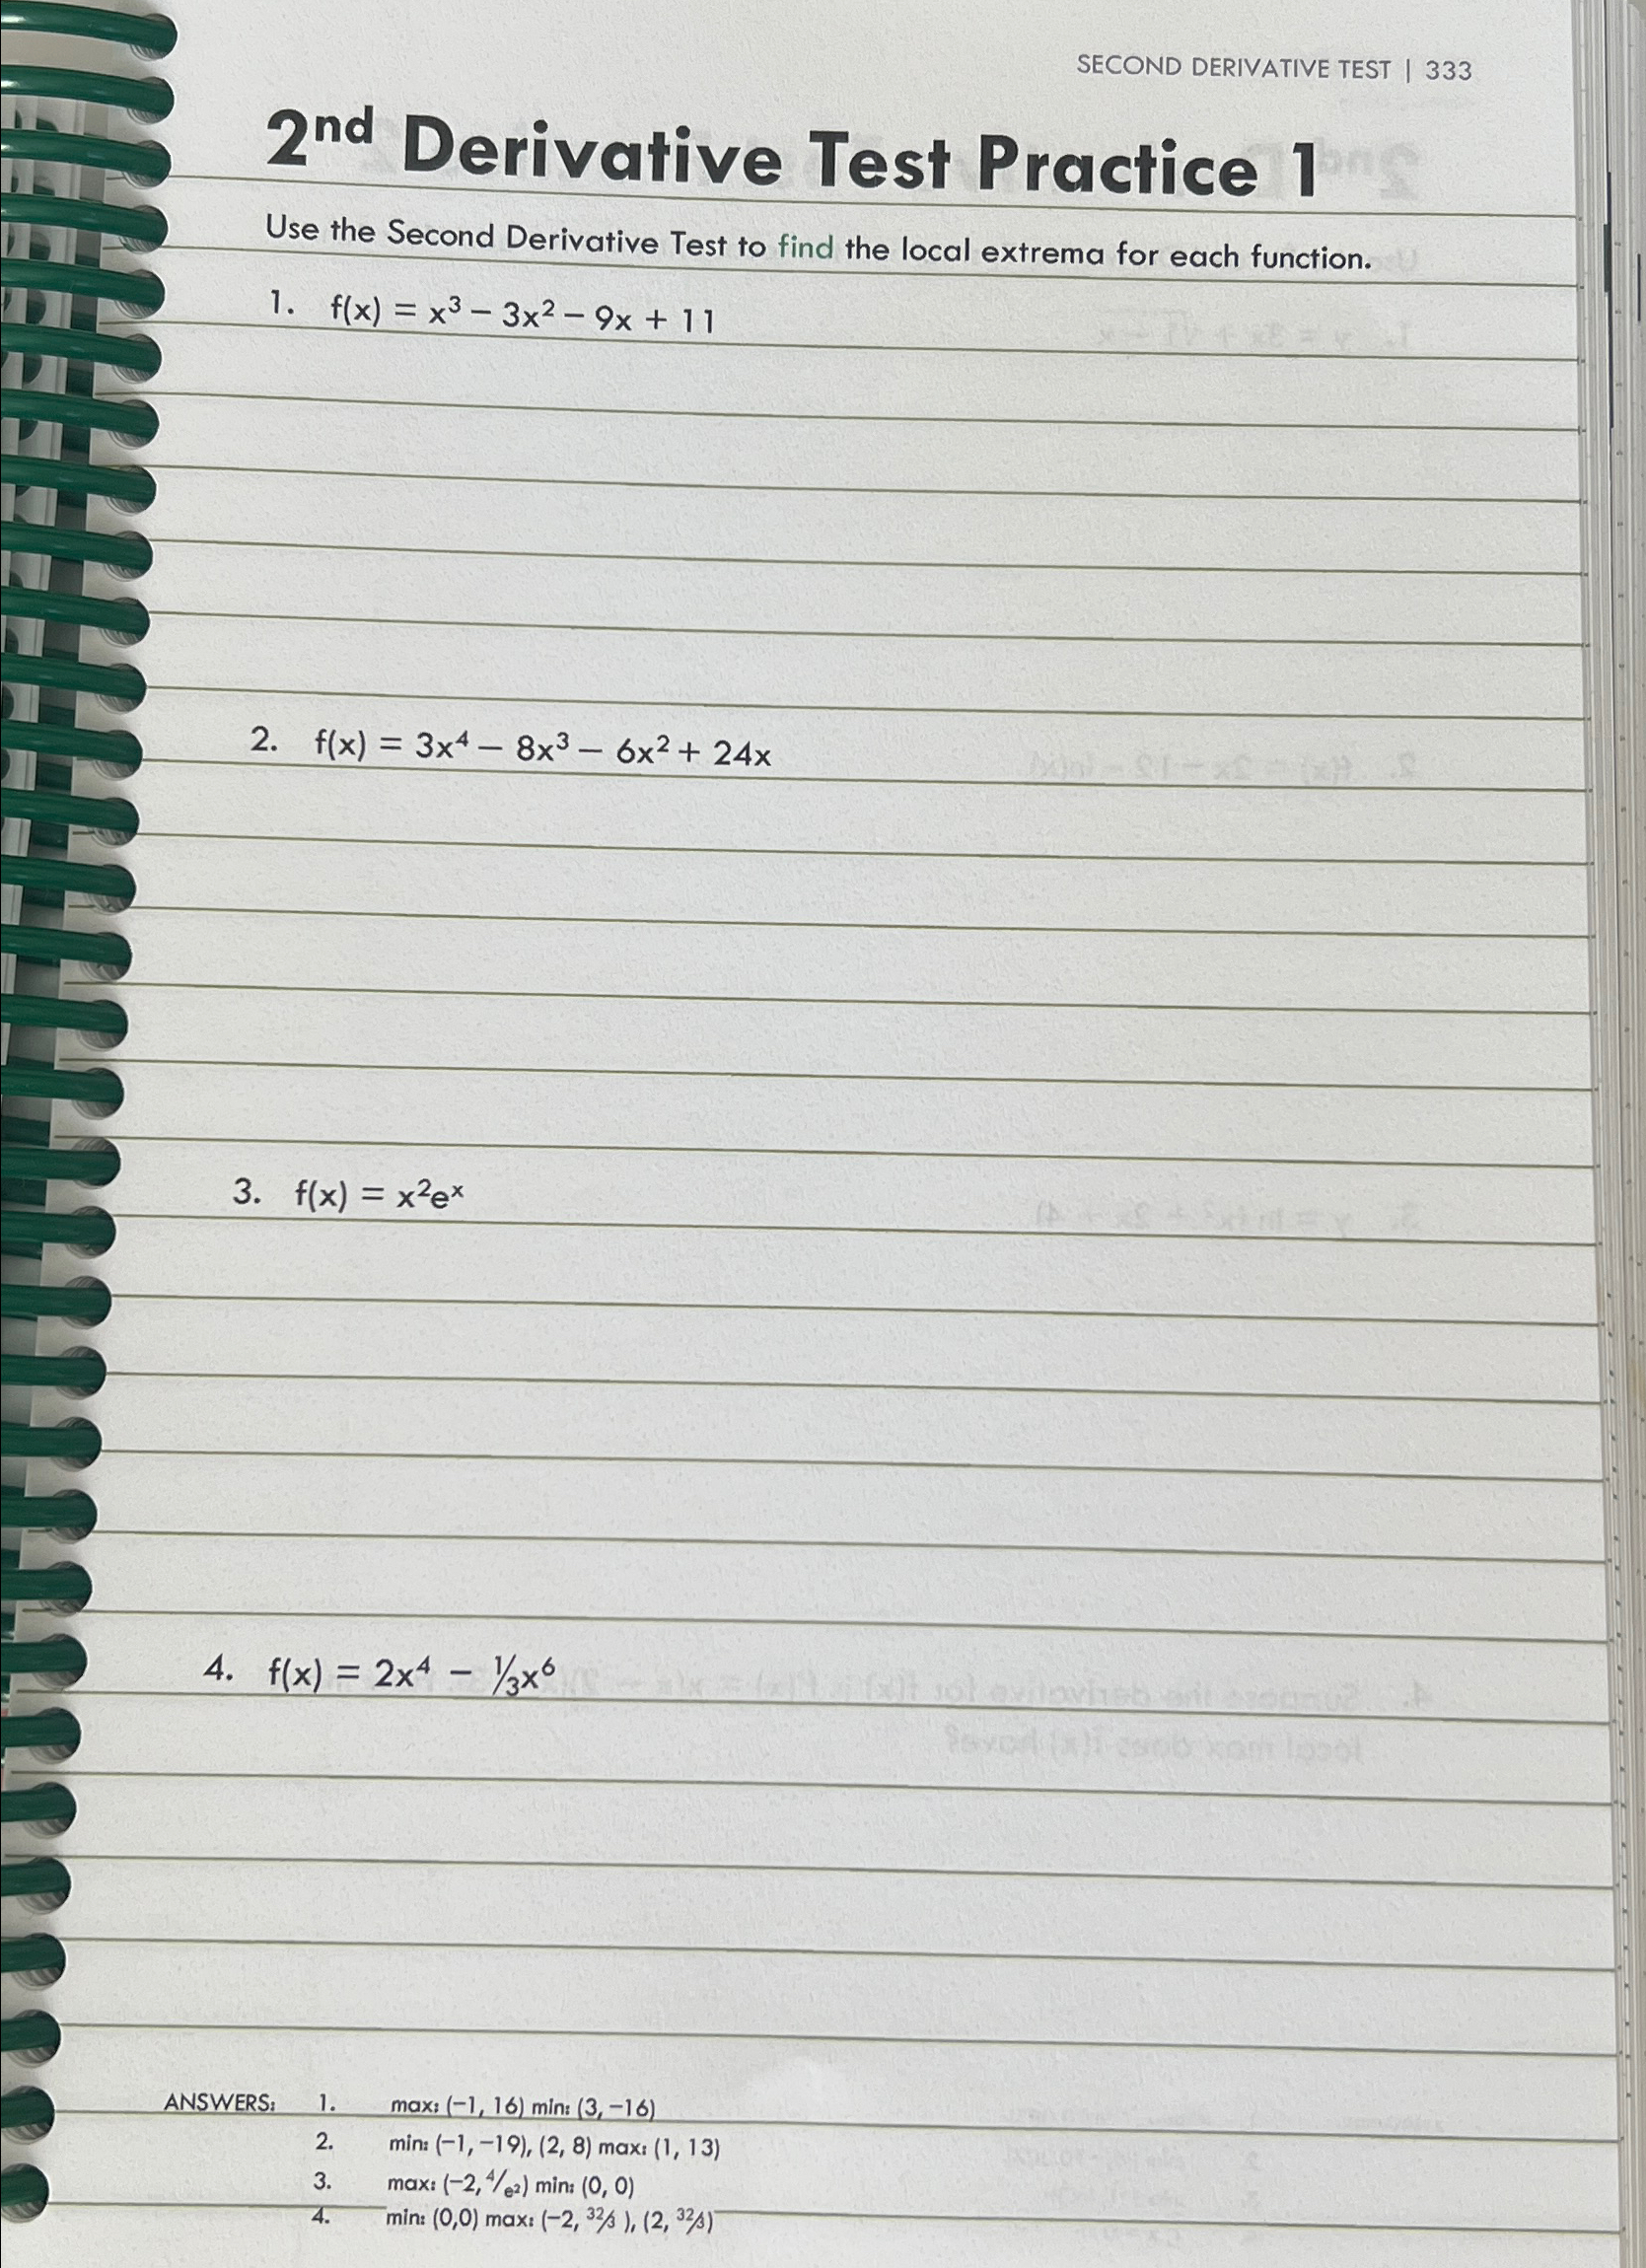 SECOND DERIVATIVE TEST | 333
2nd Derivative Test Practice 1
Use the Second Derivative Test to find the local extrema for each function.
1. f(x) = x³ – 3x² – 9x + 11
2. f(x) = 3x⁴ – 8x³ – 6x² + 24x
3. f(x) = x²eˣ
4. f(x) = 2x⁴ – ⅓x⁶
ANSWERS: 1. max: (–1, 16) min: (3, –16)
2. min: (–1, –19), (2, 8) max: (1, 13)
3. max: (–2, 4/e²) min: (0, 0)
4. min: (0,0) max: (–2, 32/3 ), (2, 32/3)